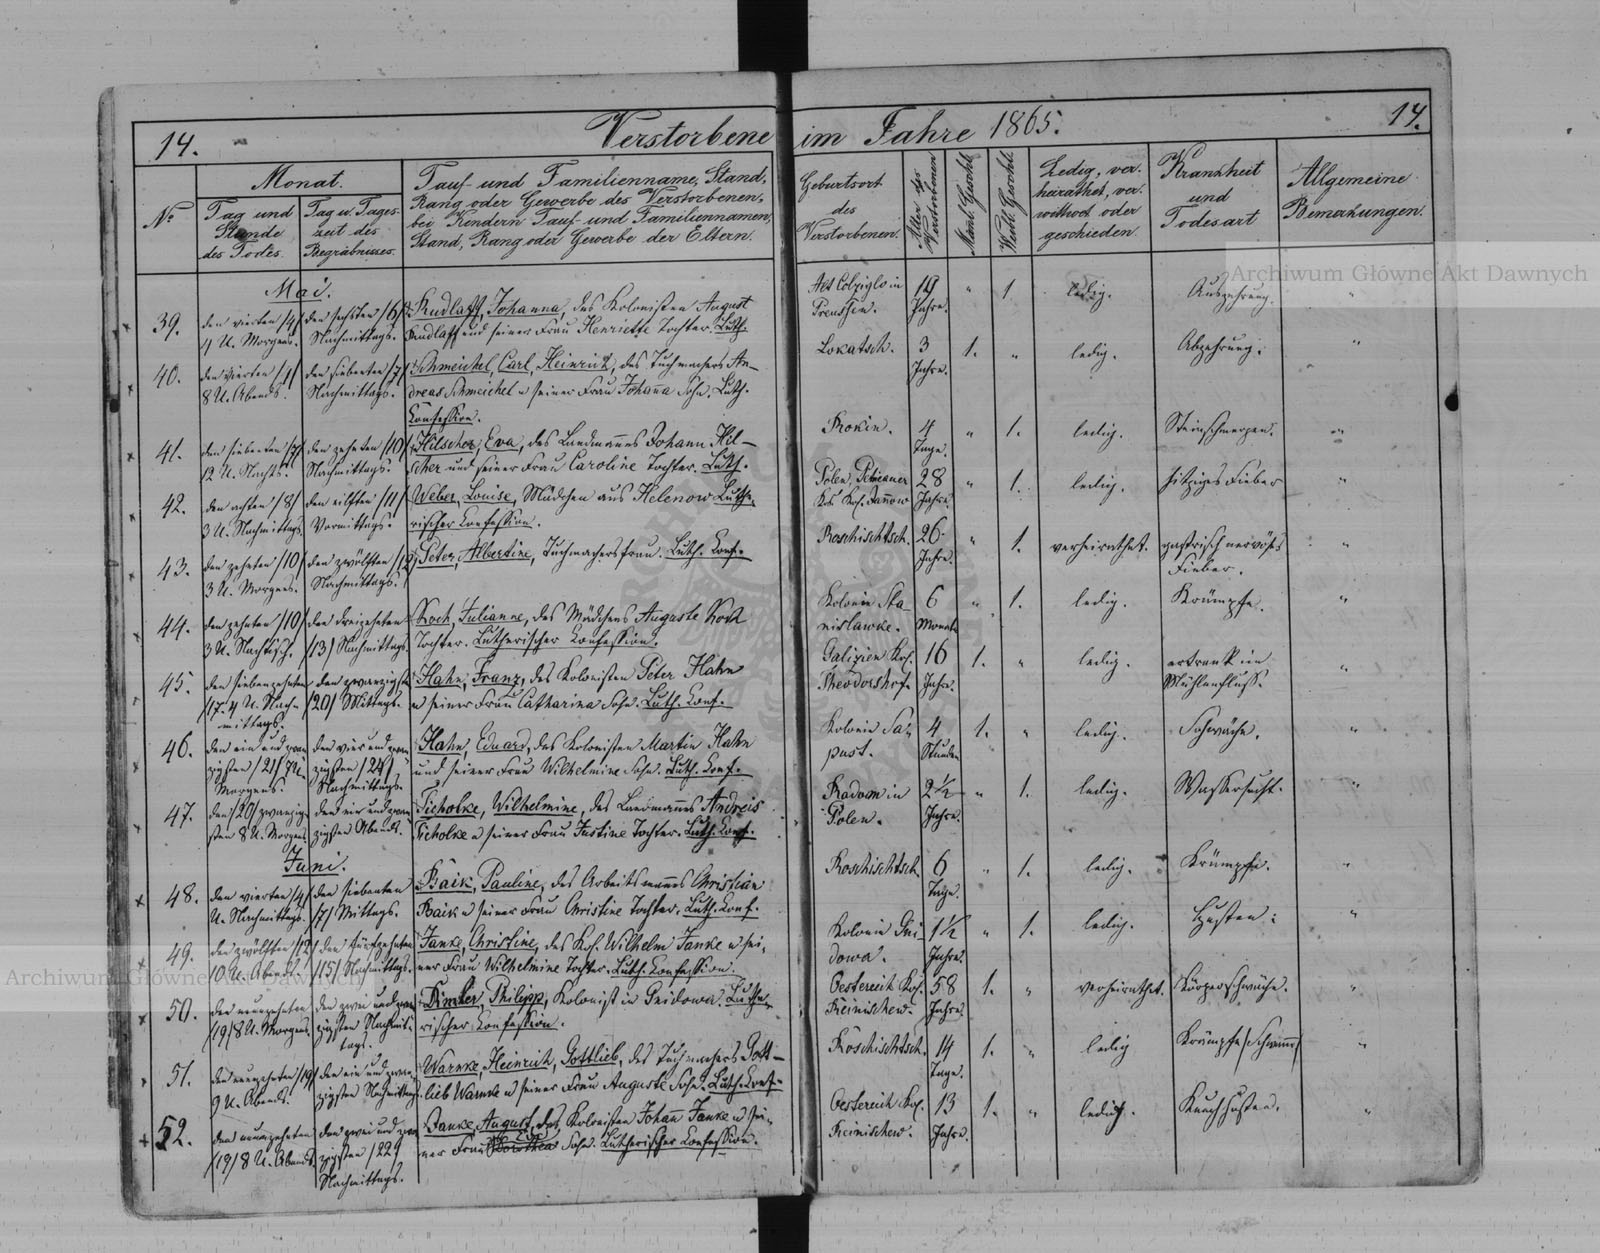 14.
Verstorbene im Jahre 1865.
14.
№
Monat.
Tag und Stunde des Todes.
Tag u. Tages-zeit des Begräbnisses.
Tauf- und Familienname, Stand,
Rang oder Gewerbe des Verstorbenen,
bei Kindern Tauf- und Familiennamen,
Stand, Rang oder Gewerbe der Eltern.
Geburtsort
des
Verstorbenen.
Alter des Verstorbenen
Mänl. Geschl.
Weibl. Geschl.
Ledig, ver-
heirathet, ver-
wittwet oder
geschieden.
Krankheit
und
Todesart
Allgemeine
Bemerkungen.
Archiwum Główne Akt Dawnych
Mai.
39.
den vierten /4/
4 U. Morgens.
den sechsten /6/
Nachmittags.
Rudlaff, Johanna, des Kolonisten August
Rudlaff und seiner Frau Henriette Tochter. Luth.
Preussen.
19
Jahre.
"
1
ledig.
Auszehrung.
"
40.
den vierten /4/
8 U. Abends.
den siebenten /7/
Nachmittags.
Schmeichel, Carl, Heinrich, des Tuchmachers An-
dreas Schmeichel u seiner Frau Johanna Sohn. Luth.
Confession.
Lokatsch.
3
Jahre.
1.
"
ledig.
Abzehrung.
"
41.
den siebenten /7/
12 U. Nachts.
den zehnten /10/
Nachmittags.
Hilscher, Eva, des Landmannes Johann Hil-
scher und seiner Frau Caroline Tochter. Luth.
Rokin.
4
Tage.
"
1.
ledig.
"
42.
den achten /8/
3 U. Nachmittags
den eilften /11/
Vormittags.
Weber, Louise, Mädchen aus Helenow Luthe-
rischer Confession.
28
Jahre.
"
1.
ledig.
hitziges Fieber
"
43.
den zehnten /10/
3 U. Morgens.
den zwölften /12/
Nachmittags.
Peter, Albertine, Tuchmachersfrau. Luth. Conf.
Roschischtsch.
26.
Jahre.
"
1.
verheirathet.
gastrisch nervöses
Fieber.
"
44.
den zehnten /10/
den dreizehnten
/13/ Nachmittags.
Koch, Julianne, des Mädchens Auguste Koch
Tochter. Lutherischer Confession.
Kolonie Sta-
nislawke.
6
Monate
"
1.
ledig.
Krämpfe.
"
45.
den siebenzehnten
/17. 4 U. Nach-
mittags.
den zwanzigsten
/20/ Mittags.
Hahn, Franz, des Kolonisten Peter Hahn
u seiner Frau Catharina Sohn. Luth. Conf.
Galizien Kol.
Theodorshof.
16
Jahre.
1.
"
ledig.
ertrank im
Mühlenfluss.
"
46.
den ein und zwan-
zigsten /21/ 7 U.
Morgens.
den vier und zwan-
zigsten /24/
Nachmittags.
Hahn, Eduard, des Kolonisten Martin Hahn
und seiner Frau Wilhelmine Sohn. Luth. Conf.
Kolonie Sa-
pust.
4
Stunden
1.
"
ledig.
Schwäche.
"
47.
den /20/ zwanzig-
sten 8 U. Morgens
zigsten Abends.
Ticholke, Wilhelmine, des Landmannes Andreis
Ticholke u seiner Frau Justine Tochter. Luth. Conf.
Radom in
Polen.
2 ½
Jahre.
"
1.
ledig.
Wassersucht.
"
Juni.
48.
den vierten /4/
U. Nachmittags.
den siebenten
/7/ Mittags.
Baik, Pauline, des Arbeitsmannes Christian
Baik u seiner Frau Christine Tochter. Luth. Conf.
Roschischtsch.
6
Tage.
"
1.
ledig.
Krämpfe.
"
49.
den zwölften /12/
10 U. Abends.
den fünfzehnten
/15/ Nachmittags.
Janke, Christine, des Kol. Wilhelm Janke u sei-
ner Frau Wilhelmine Tochter. Luth. Confession.
Kolonie Gni-
dowa.
1 ½
Jahre.
"
1.
ledig.
Husten.
"
Archiwum Główne Akt Dawnych
50.
den neunzehnten
/19/ 8 U. Morgens.
den zwei und zwan-
zigsten Nachmit-
tags.
Philipp, Kolonist in Gnidowa. Luthe-
rischer Confession.
Oestereich Kol.
Reinischew.
58
Jahre.
1.
"
verheirathet.
Körperschwäche.
"
51.
den neunzehnten /19/
9 U. Abends.
den ein und zwan-
zigsten Nachmittags.
Warnke, Heinrich, Gottlieb, des Tuchmachers Gott-
lieb Warnke u seiner Frau Auguste Sohn. Luth. Conf.
Roschischtsch.
14
Tage.
1.
"
ledig
Krämpfe /Schwämme/
"
52.
den neunzehnten
/19/ 8 U. Abends.
den zwei und zwan-
zigsten /22/
Nachmittags.
Janke, August, des Kolonisten Johann Janke u sei-
ner Frau Dorothea Sohn. Lutherischer Confession.
Oestereich Kol.
Reinischew.
13
Jahre.
1.
"
ledig.
Keuchhusten.
"